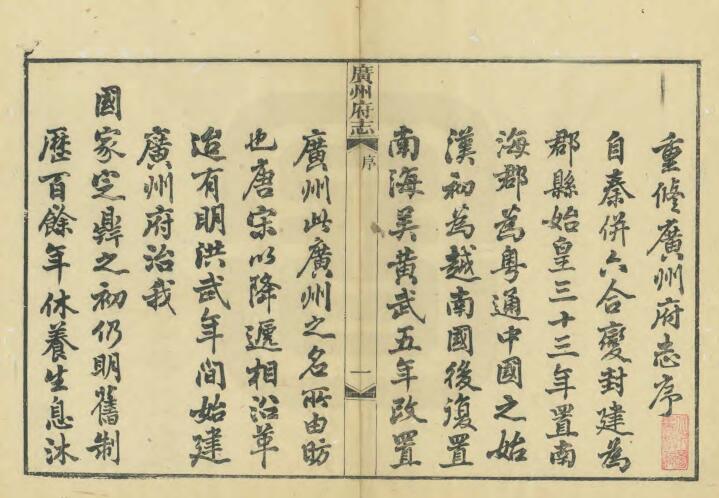 重修廣州府志序
自秦併六合變封建為
郡縣始皇三十三年置南
海郡為粵通中國之始
漢初為越南國後復置
南海吴黄武五年改置
廣州府志
序
一
廣州此廣州之名所由昉
也唐宋以降遞相沿革
迨有明洪武年间始建
廣州府治我
國家定鼎之初仍明舊制
歷百餘年休養生息沐